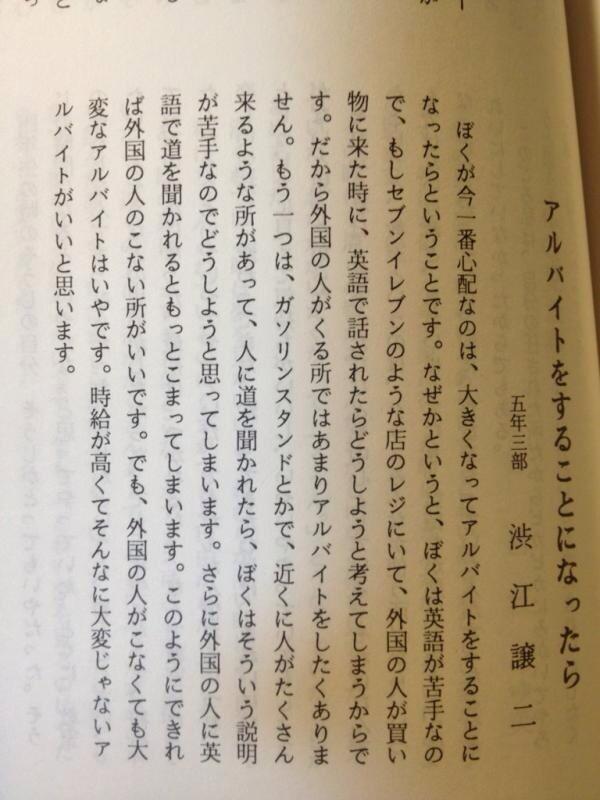 アルバイトをすることになったら
五年三部　渋江譲二
ぼくが今一番心配なのは、大きくなってアルバイトをすることに
なったらということです。なぜかというと、ぼくは英語が苦手なの
で、もしセブンイレブンのような店のレジにいて、外国の人が買い
物に来た時に、英語で話されたらどうしようと考えてしまうからで
す。だから外国の人がくる所ではあまりアルバイトをしたくありま
せん。もう一つは、ガソリンスタンドとかで、近くに人がたくさん
来るような所があって、人に道を聞かれたら、ぼくはそういう説明
が苦手なのでどうしようと思ってしまいます。さらに外国の人に英
語で道を聞かれるともっとこまってしまいます。このようにできれ
ば外国の人のこない所がいいです。でも、外国の人がこなくても大
変なアルバイトはいやです。時給が高くてそんなに大変じゃないア
ルバイトがいいと思います。